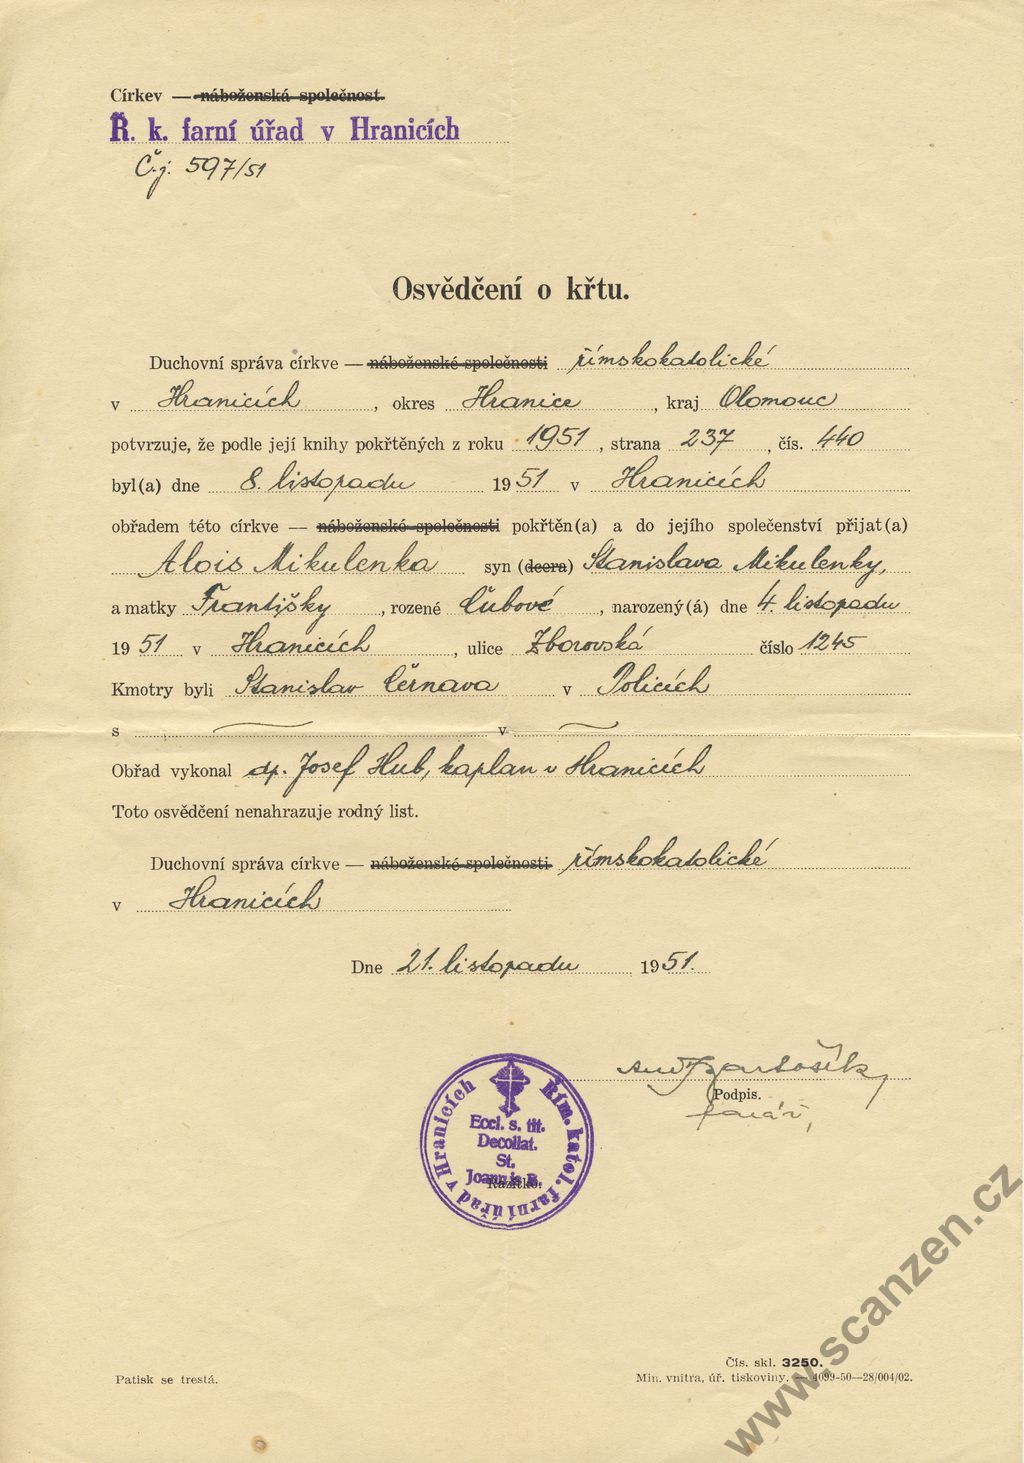 Církev — náboženská společnost
Ř. k. farní úřad v Hranicích
Č.j. 597/51
Osvědčení o křtu.
Duchovní správa církve — náboženské společnosti římskokatolické
v Hranicích, okres Hranice, kraj Olomouc
potvrzuje, že podle její knihy pokřtěných z roku 1951, strana 237, čís. 440
byl(a) dne 8. listopadu 1951 v Hranicích
obřadem této církve — náboženské společnosti pokřtěn(a) a do jejího společenství přijat(a)
Alois Mikulenka syn (dcera) Stanislava Mikulenky,
a matky Františky, rozené Čubové, narozený(á) dne 4. listopadu
1951 v Hranicích, ulice Zborovská číslo 1245
Kmotry byli Stanislav Černava v Policích
s v
Obřad vykonal dp. Josef Hub, kaplan v Hranicích
Toto osvědčení nenahrazuje rodný list.
Duchovní správa církve — náboženské společnosti římskokatolické
v Hranicích
Dne 21. listopadu 1951.
Podpis.
farář,
Řím. katol. farní úřad v Hranicích
Eccl. s. tit.
Decollat.
St.
Joannis B.
Razítko.
Čís. skl. 3250.
Patisk se trestá.
Min. vnitra, úř. tiskoviny. — 4099-50—28/004/02.
www.scanzen.cz